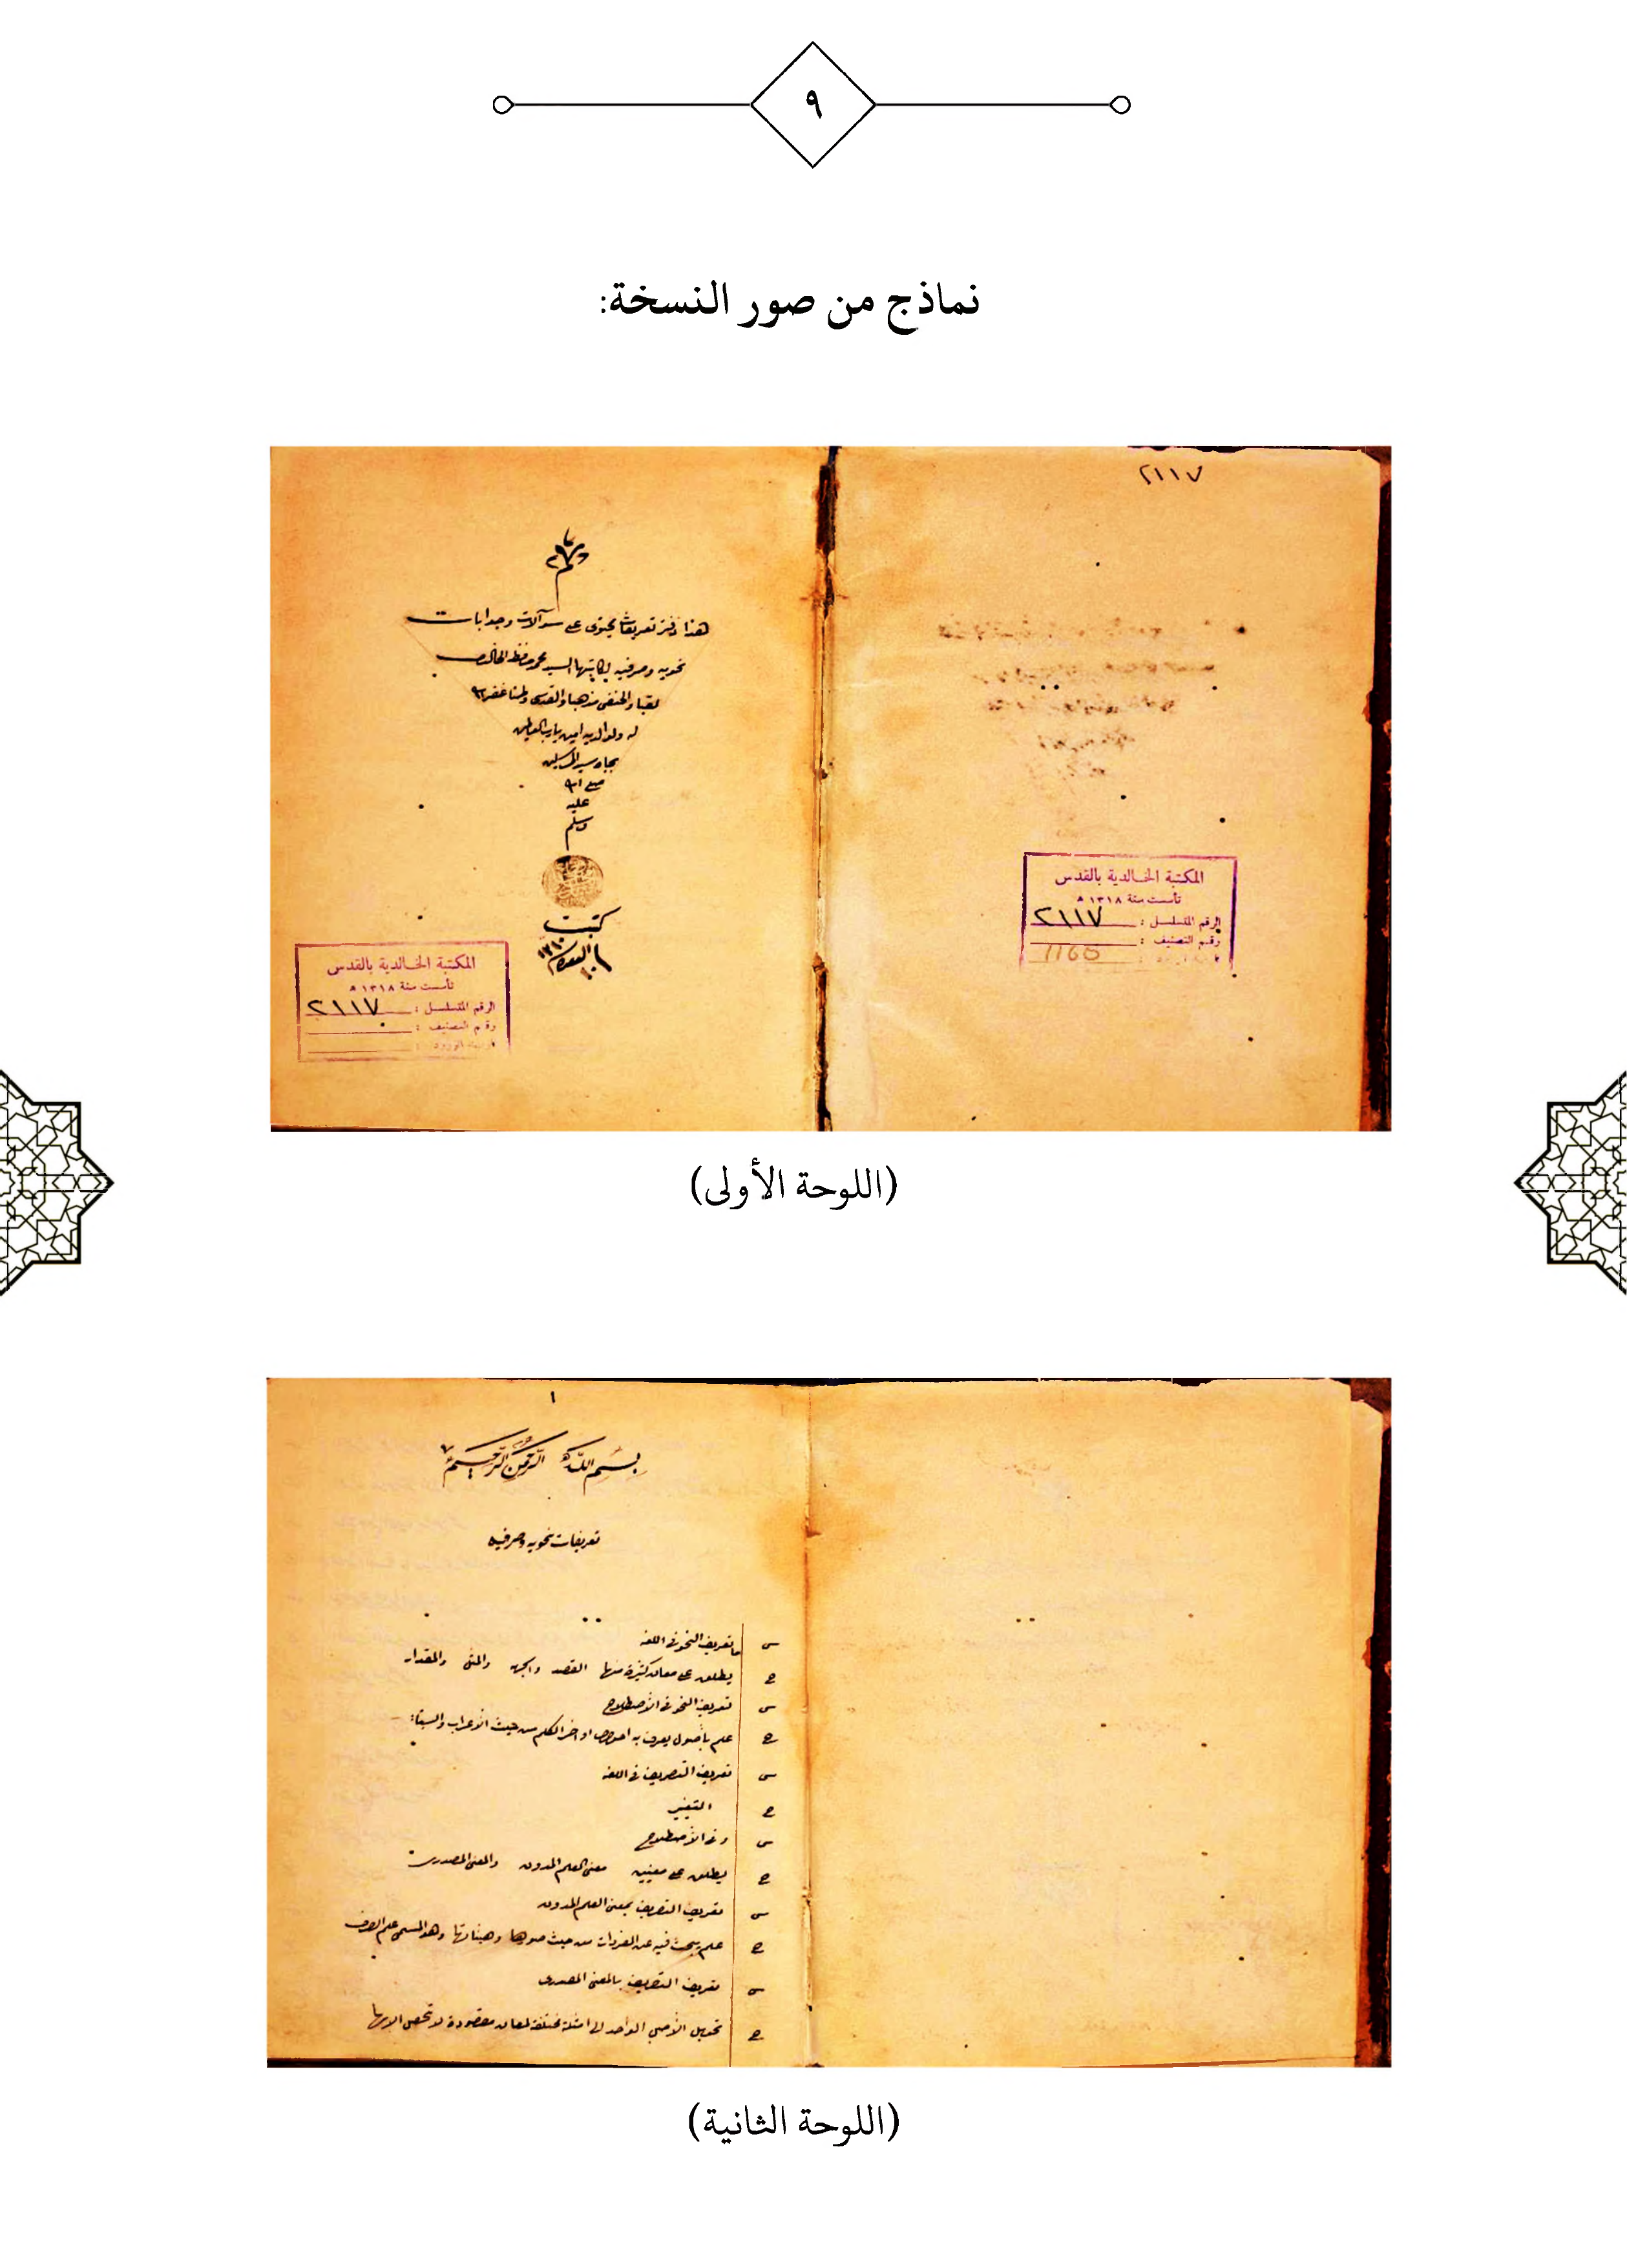 ٩
نماذج من صور النسخة:
٢١١٧
المكتبة الخالدية بالقدس
تأسست سنة ١٣١٨ هـ
الرقم المتسلسل : ٢١١٧
رقم التصنيف :
1165
هذا دفتر تعريفات يحتوى على سوآلات وجوابات
نحويه وصرفيه لكاتبها السيد محمد حافظ الخالدى
لقبا والحنفى مذهبا والقدسى وطنا غفر الله
له ولوالديه امين يارب العالمين
بجاه سيد المرسلين
صلى الله
عليه
وسلم
كتبت
المكتبة الخالدية بالقدس
تأسست سنة ١٣١٨ هـ
الرقم المتسلسل : ٢١١٧
رقم التصنيف :
تاريخ الورود :
(اللوحة الأولى)
١
بسم الله الرحمن الرحيم
تعريفات نحويه وصرفيه
س ما تعريف النحو فى اللغه
ج يطلق على معان كثيرة منها القصد والجهه والمثل والمقدار
س تعريف النحو فى الأصطلاح
ج علم بأصول يعرف به احوال اواخر الكلم من حيث الأعراب والبناء
س تعريف التصريف فى اللغه
ج التغيير
س وفى الأصطلاح
ج يطلق على معنيين معنى العلم المدون والمعنى المصدرى
س تعريف التصريف بمعنى العلم المدون
ج علم يبحث فيه عن المفردات من حيث صورها وهيئاتها وهو المسمى علم الصرف
س تعريف التصريف بالمعنى المصدرى
ج تحويل الأصل الواحد الى امثلة مختلفة لمعان مقصودة لا تحصل الا بها
(اللوحة الثانية)